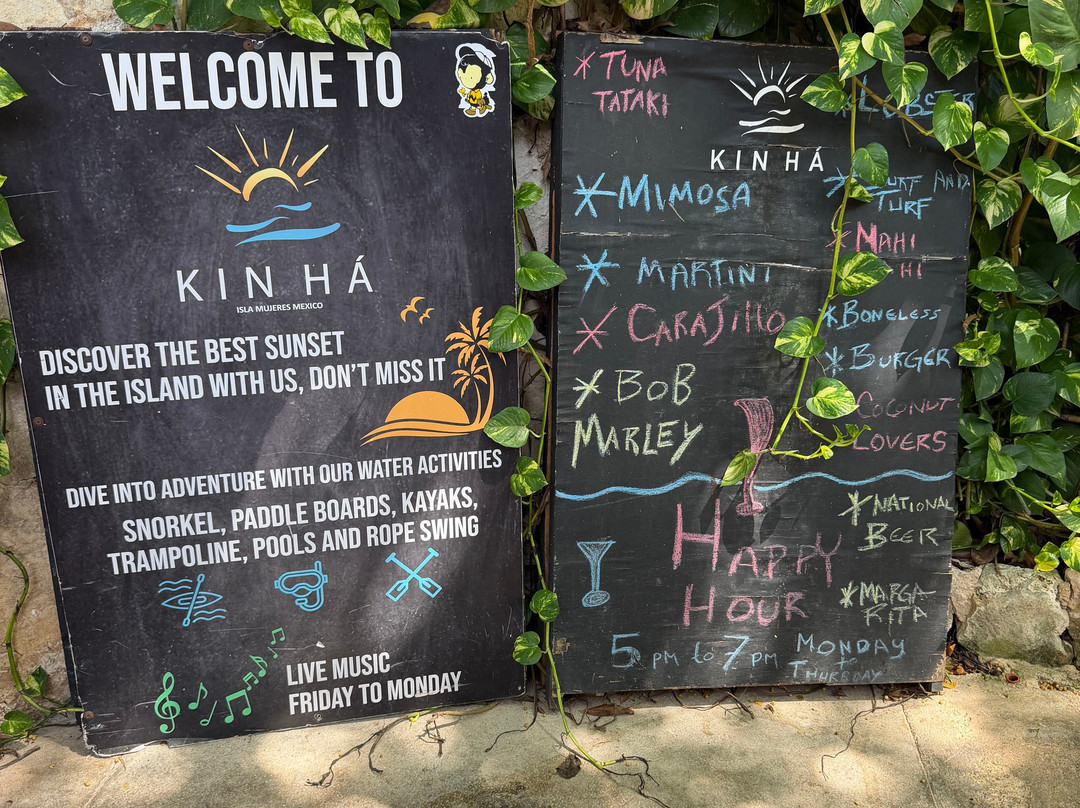 WELCOME TO
KIN HÁ
ISLA MUJERES MEXICO
DISCOVER THE BEST SUNSET
IN THE ISLAND WITH US, DON'T MISS IT
DIVE INTO ADVENTURE WITH OUR WATER ACTIVITIES
SNORKEL, PADDLE BOARDS, KAYAKS,
TRAMPOLINE, POOLS AND ROPE SWING
LIVE MUSIC
FRIDAY TO MONDAY
* TUNA
TATAKI
KIN HÁ
* MIMOSA
* MARTINI
* CARAJILLO
* BOB
MARLEY
LOBSTER
* SURF AND
TURF
* MAHI
HI
* BONELESS
* BURGER
COCONUT
LOVERS
HAPPY
HOUR
* NATIONAL
BEER
* MARGA-
RITA
5 PM to 7 PM MONDAY
to
THURSDAY